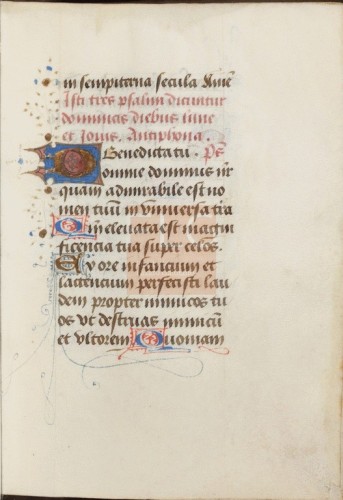 in sempiterna secula Amē
Isti tres psalmi dicuntur
dominicis diebus lune
et Iouis. Antiphona.
Benedicta tu. Ps
Domine dominus nr̄
quam admirabile est no
men tuū in vniuersa t̄ra
Qm̄ eleuata est magni
ficencia tua super celos.
Ex ore infancium et
lactencium perfecisti lau
dem propter inimicos tu
os vt destruas inimicū
et vltorem Quoniam